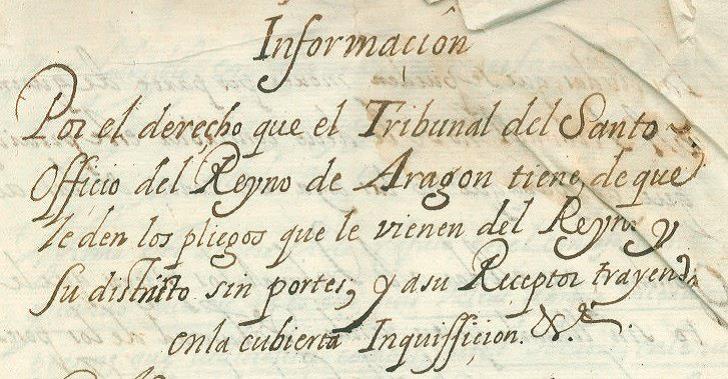 Información
Por el derecho que el Tribunal del Santo
Officio del Reyno de Aragon tiene, de que
le den los pliegos que le vienen del Reyno y
su districto sin portes; y a su Receptor trayendo
en la cubierta Inquissicion. &.ª